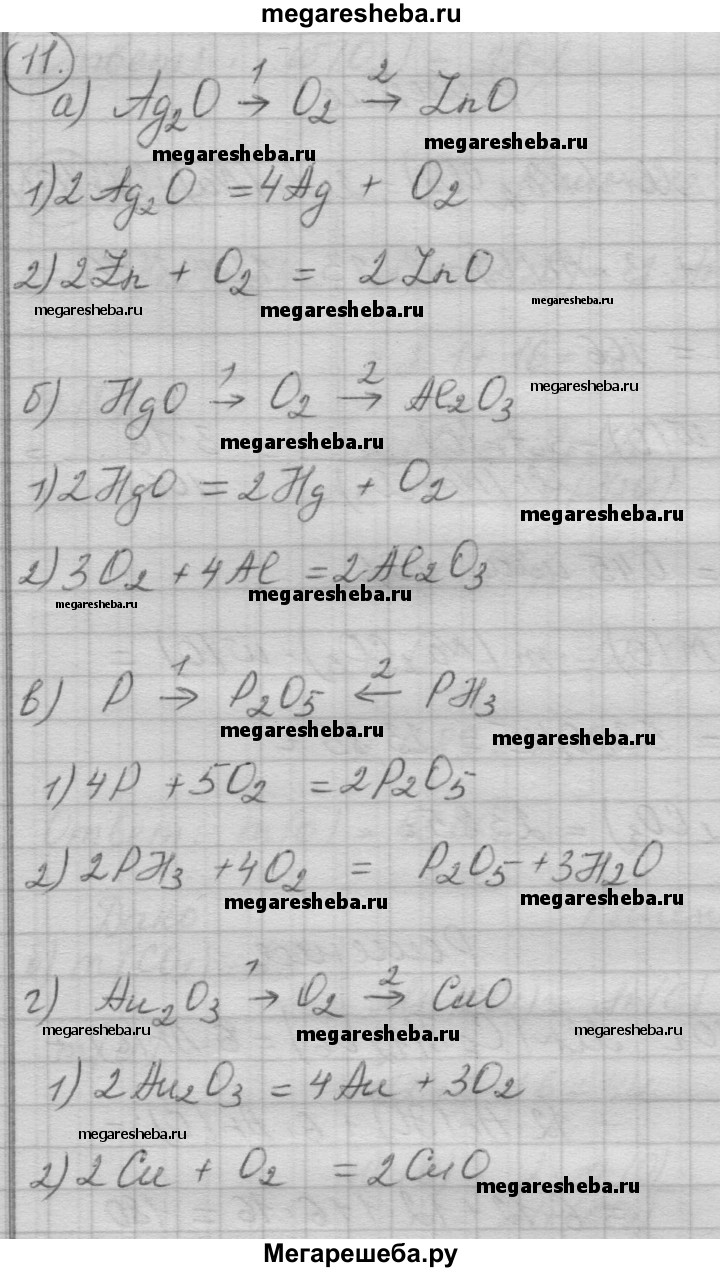 megaresheba.ru
11.
а) Ag₂O →¹ O₂ →² ZnO
megaresheba.ru megaresheba.ru
1) 2Ag₂O = 4Ag + O₂
megaresheba.ru
2) 2Zn + O₂ = 2ZnO
megaresheba.ru megaresheba.ru megaresheba.ru
б) HgO →¹ O₂ →² Al₂O₃
megaresheba.ru
megaresheba.ru
1) 2HgO = 2Hg + O₂
megaresheba.ru
2) 3O₂ + 4Al = 2Al₂O₃
megaresheba.ru megaresheba.ru
в) P →¹ P₂O₅ ←² PH₃
megaresheba.ru megaresheba.ru
1) 4P + 5O₂ = 2P₂O₅
2) 2PH₃ + 4O₂ = P₂O₅ + 3H₂O
megaresheba.ru megaresheba.ru
г) Au₂O₃ →¹ O₂ →² CuO
megaresheba.ru megaresheba.ru megaresheba.ru
1) 2Au₂O₃ = 4Au + 3O₂
megaresheba.ru
2) 2Cu + O₂ = 2CuO
megaresheba.ru
Мегарешеба.ру